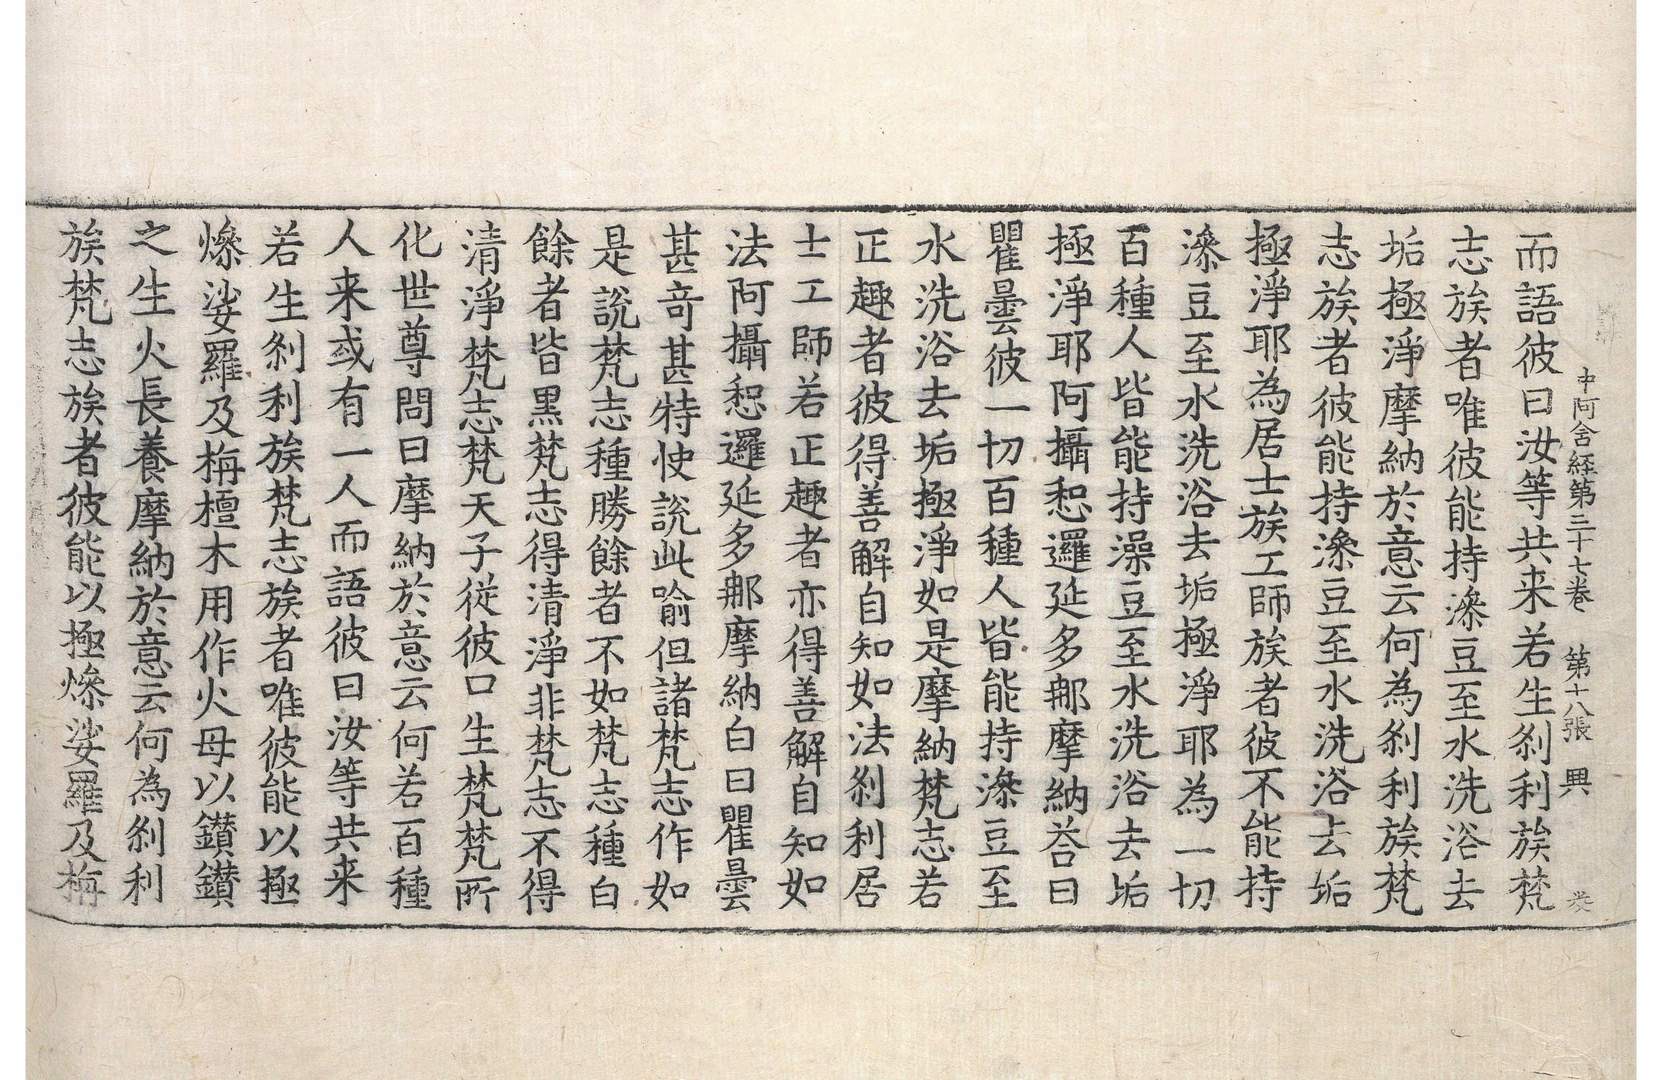 中阿含経第三十七巻　第十八張　興
而語彼曰汝等共来若生刹利族梵
志族者唯彼能持澡豆至水洗浴去
垢極淨摩納於意云何為刹利族梵
志族者彼能持澡豆至水洗浴去垢
極淨耶為居士族工師族者彼不能持
澡豆至水洗浴去垢極淨耶為一切
百種人皆能持澡豆至水洗浴去垢
極淨耶阿攝惒邏延多那摩納荅曰
瞿曇彼一切百種人皆能持澡豆至
水洗浴去垢極淨如是摩納梵志若
正趣者彼得善解自知如法刹利居
士工師若正趣者亦得善解自知如
法阿攝惒邏延多那摩納白曰瞿曇
甚奇甚特快說此喻但諸梵志作如
是說梵志種勝餘者不如梵志種白
餘者皆黒梵志得清淨非梵志不得
清淨梵志梵天子從彼口生梵梵所
化世尊問曰摩納於意云何若百種
人来或有一人而語彼曰汝等共来
若生刹利族梵志族者唯彼能以極
燥娑羅及栴檀木用作火母以鑚鑚
之生火長養摩納於意云何為刹利
族梵志族者彼能以極燥娑羅及栴